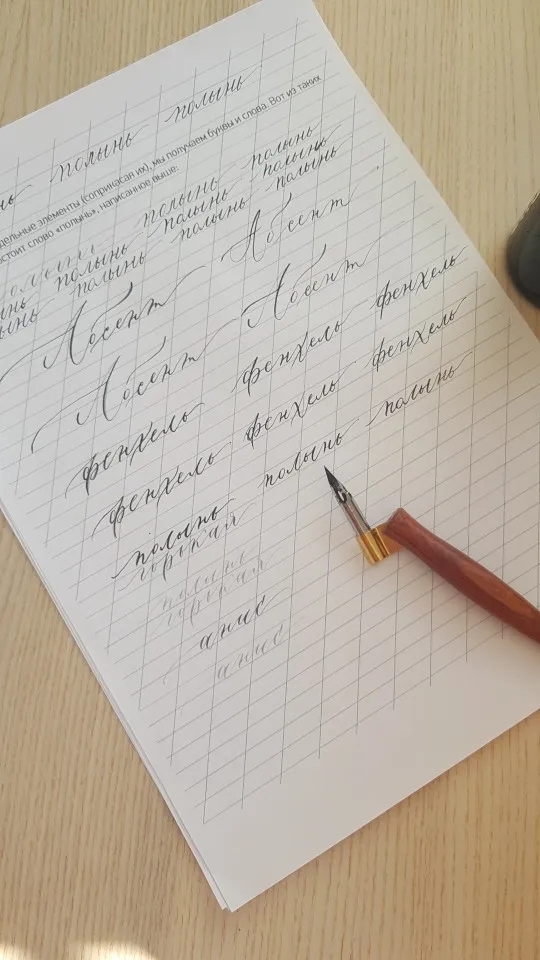 нь полынь полынь
дельные элементы (соприкасая их), мы получаем буквы и слова. Вот из таких
стоит слово «полынь», написанное выше:
полынь полынь полынь
нь полынь полынь полынь
ынь полынь полынь полынь
Абсент Абсент
Абсент Абсент
фенхель фенхель фенхель
фенхель фенхель фенхель
полынь полынь полынь
горькая
полынь
горькая
анис
анис